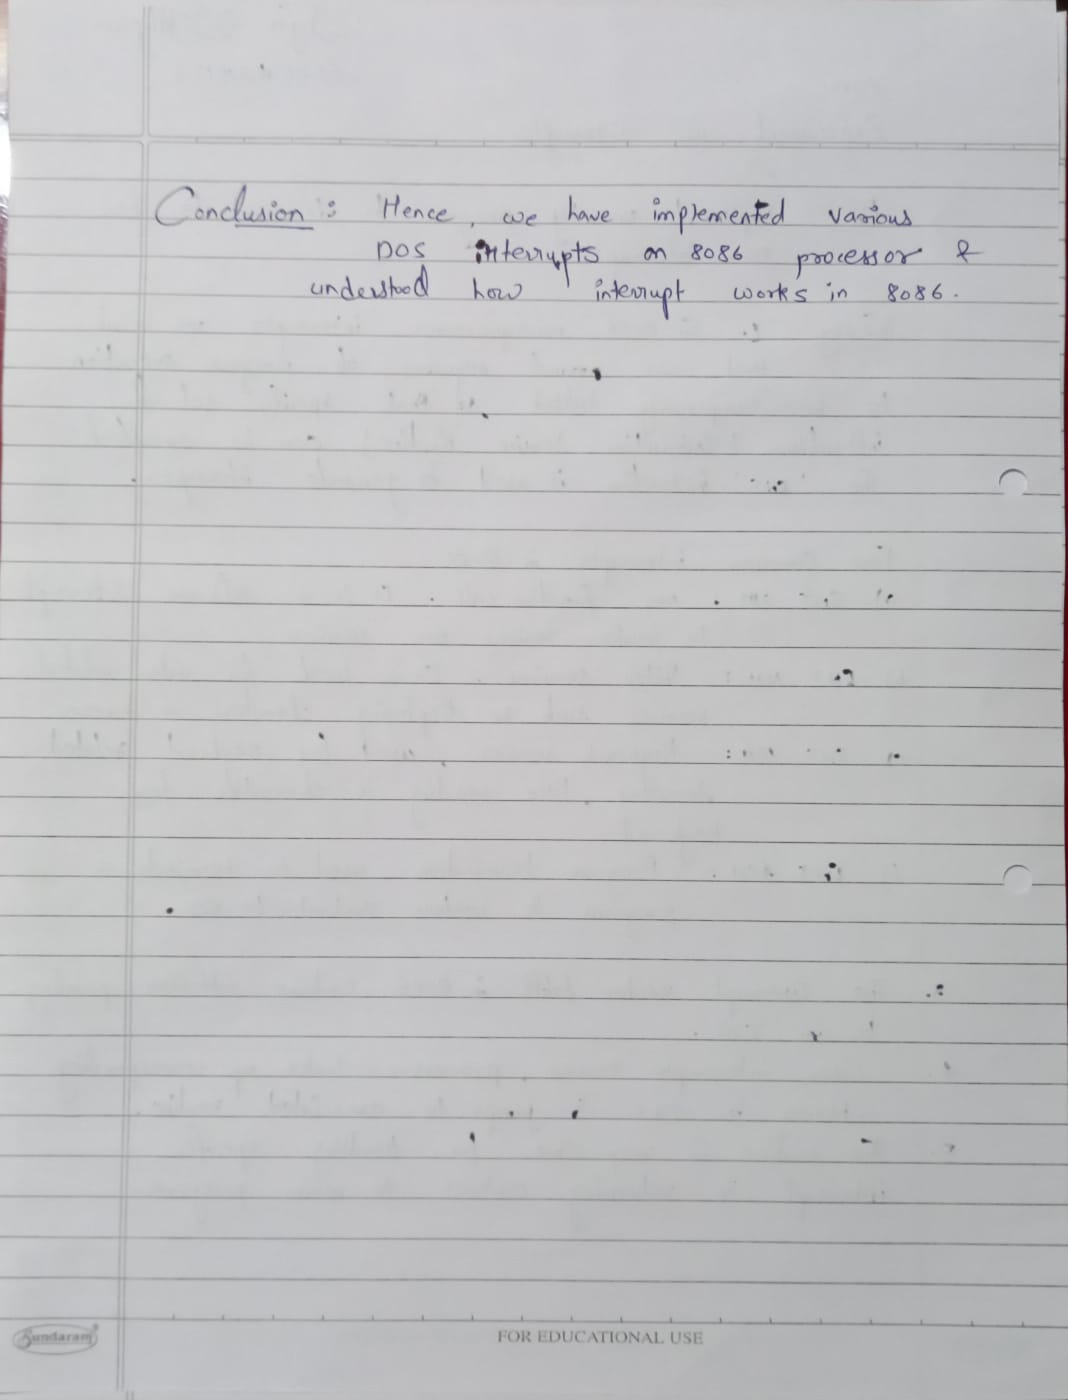 Conclusion : Hence, we have implemented various
DOS interrupts on 8086 processor &
understood how interrupt works in 8086.
Sundaram
FOR EDUCATIONAL USE